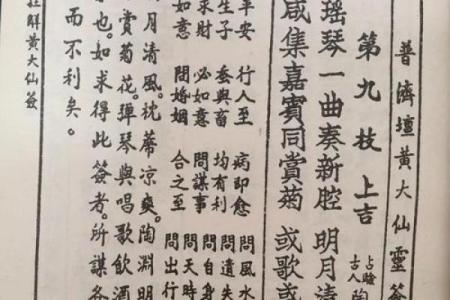 普濟壇黃大仙靈簽
第九枝 上吉 占驗古人 陶
瑤琴一曲奏新腔 明月清
咸集嘉賓同賞菊 或歌或
平安 行人至 病即愈 問風水
生子 蚕與畜 均有利 問遺失
求財 必如意 問謀事 問自身
問天時
如意 問婚姻 合之至 問出行
月清風。枕蓆凉爽。陶淵明
賞菊花。彈琴與唱歌飲酒
也。如求得此簽者。所謀各
而不利矣。
黃大仙簽